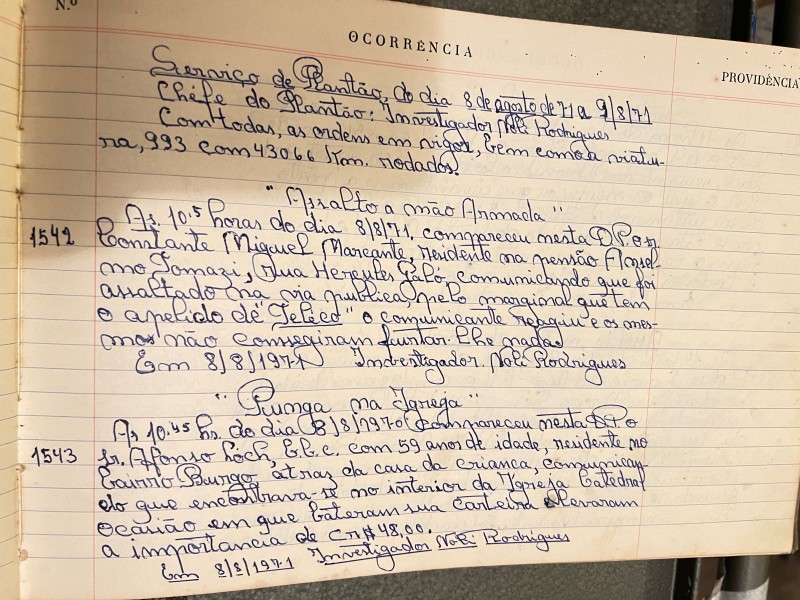 N.º
OCORRÊNCIA
PROVIDÊNCIA
Serviço de Plantão, do dia 8 de agosto de 71 a 9/8/71
Chefe do Plantão: Investigador Noli Rodrigues
Com todas, as ordens em vigor, bem como a viatu-
ra, 993 com 43066 Km. rodados.
"Assalto a mão Armada"
As. 10.5 horas do dia 8/8/71, compareceu nesta DP. o sr.
1542 Constante Miguel Marcante, residente na pensão Ansel-
mo Tomazi, Rua Hercules Galó, comunicando que foi
assaltado na via publica, pelo marginal que tem
o apelido de "Teleco" o comunicante reagiu e os mes-
mos não consegiram furtar-lhe nada
Em 8/8/1971 Investigador. Noli Rodrigues
"Punga na Igreja"
As 10.45 hs. do dia 8/8/1970 compareceu nesta DP o
1543 Sr. Afonso Loch, b.b.c. com 59 anos de idade, residente no
bairro Burgo atras da casa da criança, comunican-
do que encontrava-se no interior da Igreja Catedral
ocasião em que bateram sua carteira e levaram
a importancia de CR$ 48,00.
Em 8/8/1971 Investigador Noli Rodrigues